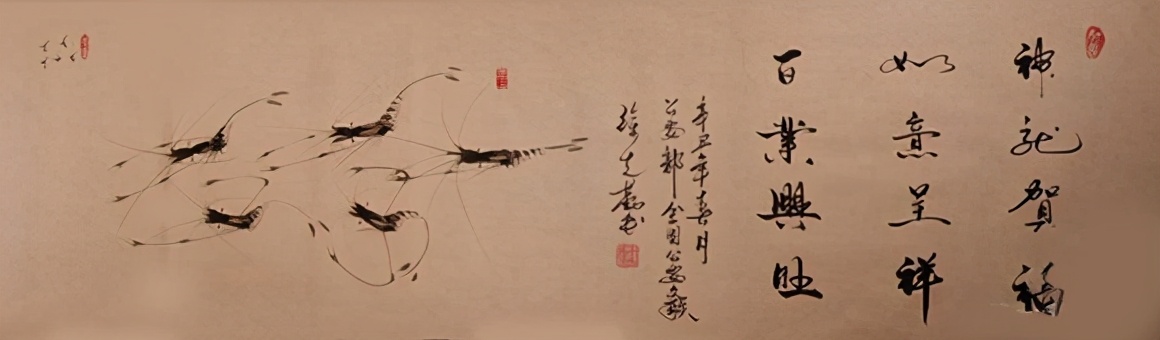 神龙贺福
如意呈祥
百業興旺
辛丑年春月
公安部全国公安文
徐先书